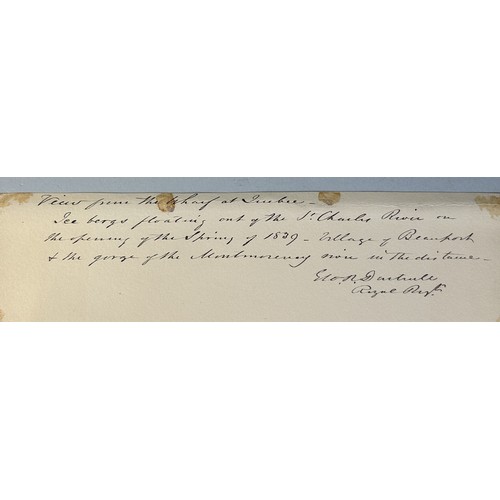 View from the Wharf at Quebec –
Ice bergs floating out of the St Charles River on
the opening of the Spring of 1839 – Village of Beauport
& the gorge of the Montmorency river in the distance –
Geo. R.
Royal Regt.